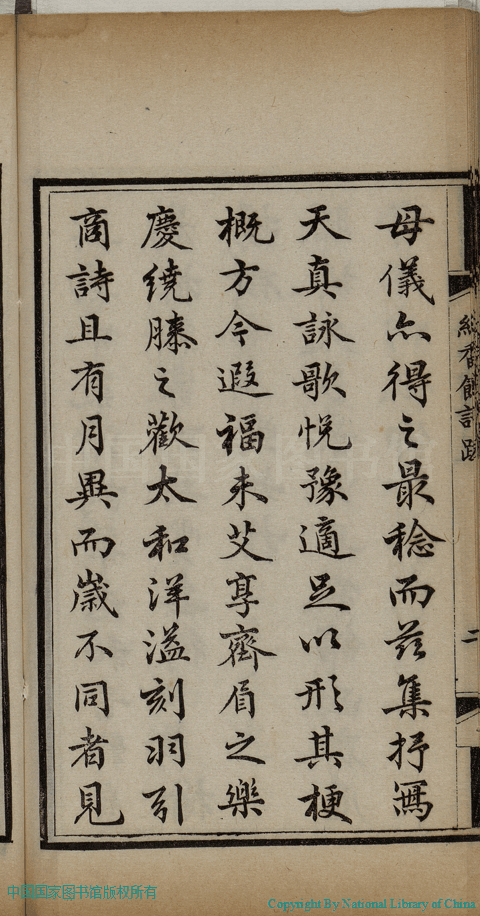 母儀亦得之最稔而茲集抒寫
天真詠歌悅豫適足以形其梗
概方今遐福未艾享齊眉之樂
慶繞膝之歡太和洋溢刻羽引
商詩且有月異而歲不同者見
館詩跋
二
中国国家图书馆版权所有
Copyright By National Library of China